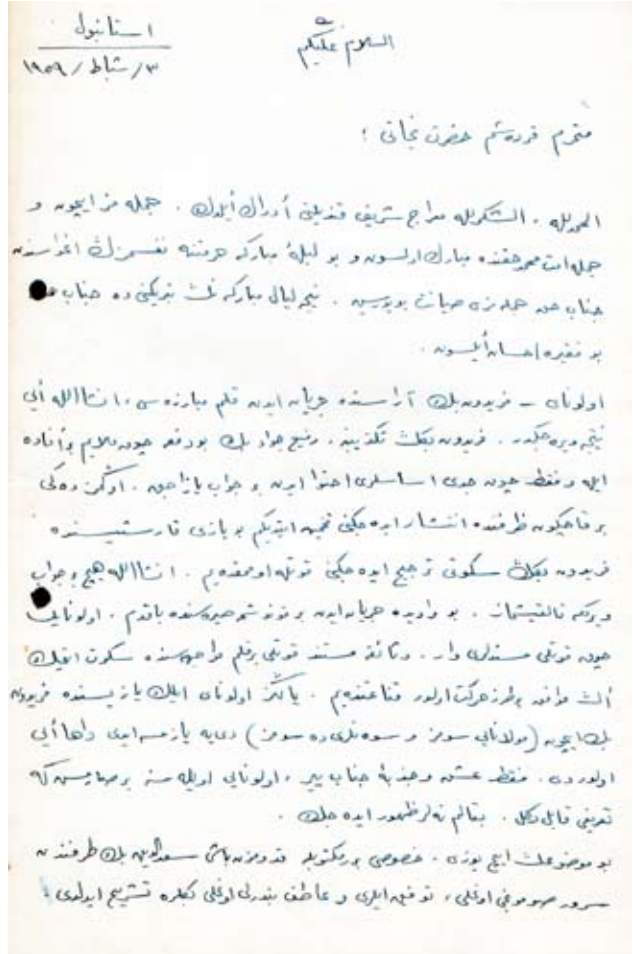 السلام عليكم
استانبول
٣/شباط/١٩٥٩
محترم قردهشم حضرت نجاتى ؛
الحمدلله ، الشكرلله معراج شريف قنديلنى ادراك ايلدك . جمله مز ايچون و
جمله امت محمد حقنده مبارك اولسون و بو ليلۀ مباركه حرمتنه نفسمزك اغواسندن
جناب حق جمله مزى صيانت بويورسين . نيجه ليال مباركه نك تبريكنى ده جناب حق
بو فقيره احسان أيلسون .
اولوناى - فريدون بك آراسنده جريان ايدن قلم مبارزه سى ، انشاالله أيى
نتيجه ويره جكدر . فريدون بكك تكذيبنه ، رفيع جواد بك بو دفعه چوق ملايم بر أفاده
ايله و فقط چوق جدى اساسلرى احتوا ايدن بر جواب يازاجق . اوڭمزده كى
بر قاچ كون ظرفنده انتشار ايده جكنى تخمين ايتديكم بو يازى قارشيسنده
فريدون بكك سكوتى ترجيح ايده جكنى قوتله اومقدهيم . انشاالله هيچ بر جواب
ويرمكه قالقيشماز . بو واديده جريان ايدن بر
چوق قوتلى مستندلرى وار . وثائقه مستند قوتلى بر قلم مواجهه سنده سكوت ايتمك
ألك موافق بر طرز حركت اولور قناعتندهيم . يالكز اولوناى ايلك يازيسنده فريدون
بك ايچون (مولانايى سومز و سونلرى ده سومز) دييه يازمسه ايدى داها أيى
اولوردى . فقط عشق و جذبۀ جناب پير ، اولونايى اويله صارمش كه
تعريفى قابل دكل . باقالم نه لر ظهور ايده جك .
بو موضوعك ايچ يوزى . خصوصى بر مكتوبله قدومزن باشى سعدالدين بك طرفندن
سرور صومونجى اوغلى ، توفيق ايلرى و عاطف بندرلى اوغلى بكلره تشريح ايدلدى .